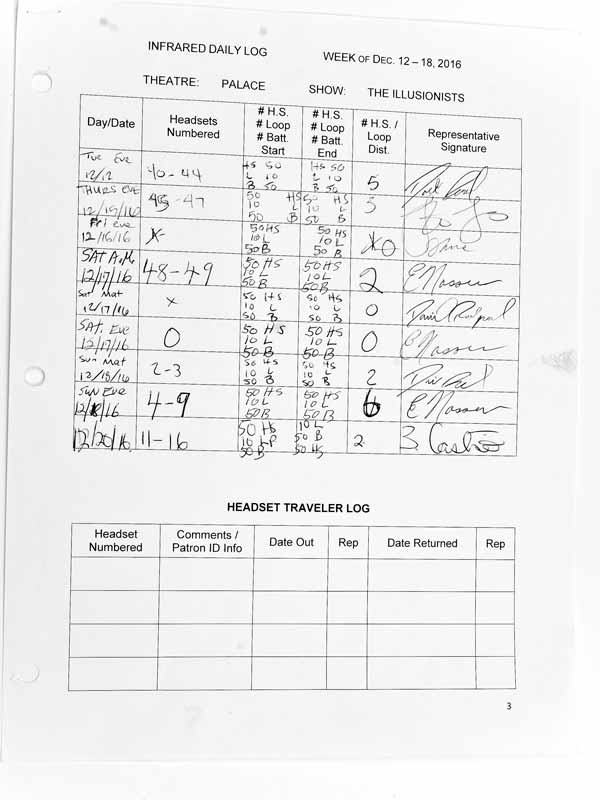 INFRARED DAILY LOG WEEK OF DEC. 12 – 18, 2016
THEATRE: PALACE SHOW: THE ILLUSIONISTS
Day/Date
Headsets
Numbered
# H.S.
# Loop
# Batt.
Start
# H.S.
# Loop
# Batt.
End
# H.S. /
Loop
Dist.
Representative
Signature
Tue Eve
12/12
40-44
HS 50
L 10
B 50
HS 50
L 10
B 50
5
THURS EVE
12/15/16
50 HS
10 L
50 B
50 HS
10 L
50 B
Fri Eve
12/16/16
X
50 HS
10 L
50 B
50 HS
10 L
50 B
0
SAT A.M.
12/17/16
48-49
50 HS
10 L
50 B
50 HS
10 L
50 B
2
E Nasser
Sat Mat
12/17/16
x
50 HS
10 L
50 B
50 HS
10 L
50 B
0
SAT. Eve
12/17/16
0
50 HS
10 L
50 B
50 HS
10 L
50 B
0
E Nasser
Sun Mat
12/18/16
2-3
50 HS
10 L
50 B
50 HS
10 L
50 B
2
SUN EVE
12/18/16
4-9
50 HS
10 L
50 B
50 HS
10 L
50 B
6
E Nasser
12/20/16
11-16
50 HS
10 LP
50 B
10 L
50 B
50 HS
2
HEADSET TRAVELER LOG
Headset
Numbered
Comments /
Patron ID Info
Date Out
Rep
Date Returned
Rep
3